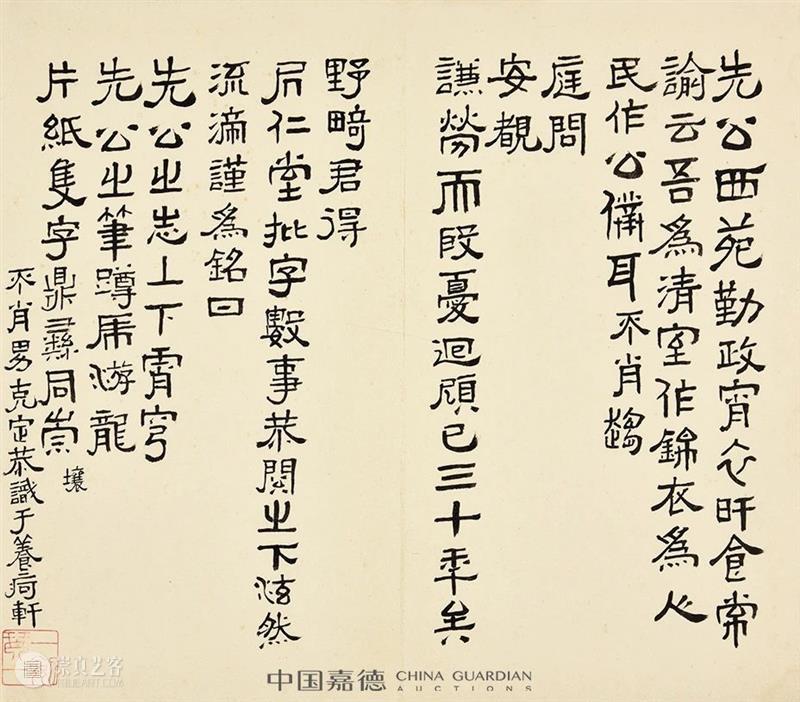 先公西苑勤政宵衣旰食常
諭云吾爲清室作錦衣爲人
民作公僕耳不肖趨
庭問
安覩
謙勞而殷憂迴頋已三十年矣
野畸君得
居仁堂批字數事恭閱之下泫然
流渧謹爲銘曰
先公之志上下霄穹
先公之筆蹲虎游龍
片紙隻字鼎彝同崇
壤
不肖男克定恭識于養疴軒
崇真艺客
中国嘉德 CHINA GUARDIAN
AUCTIONS